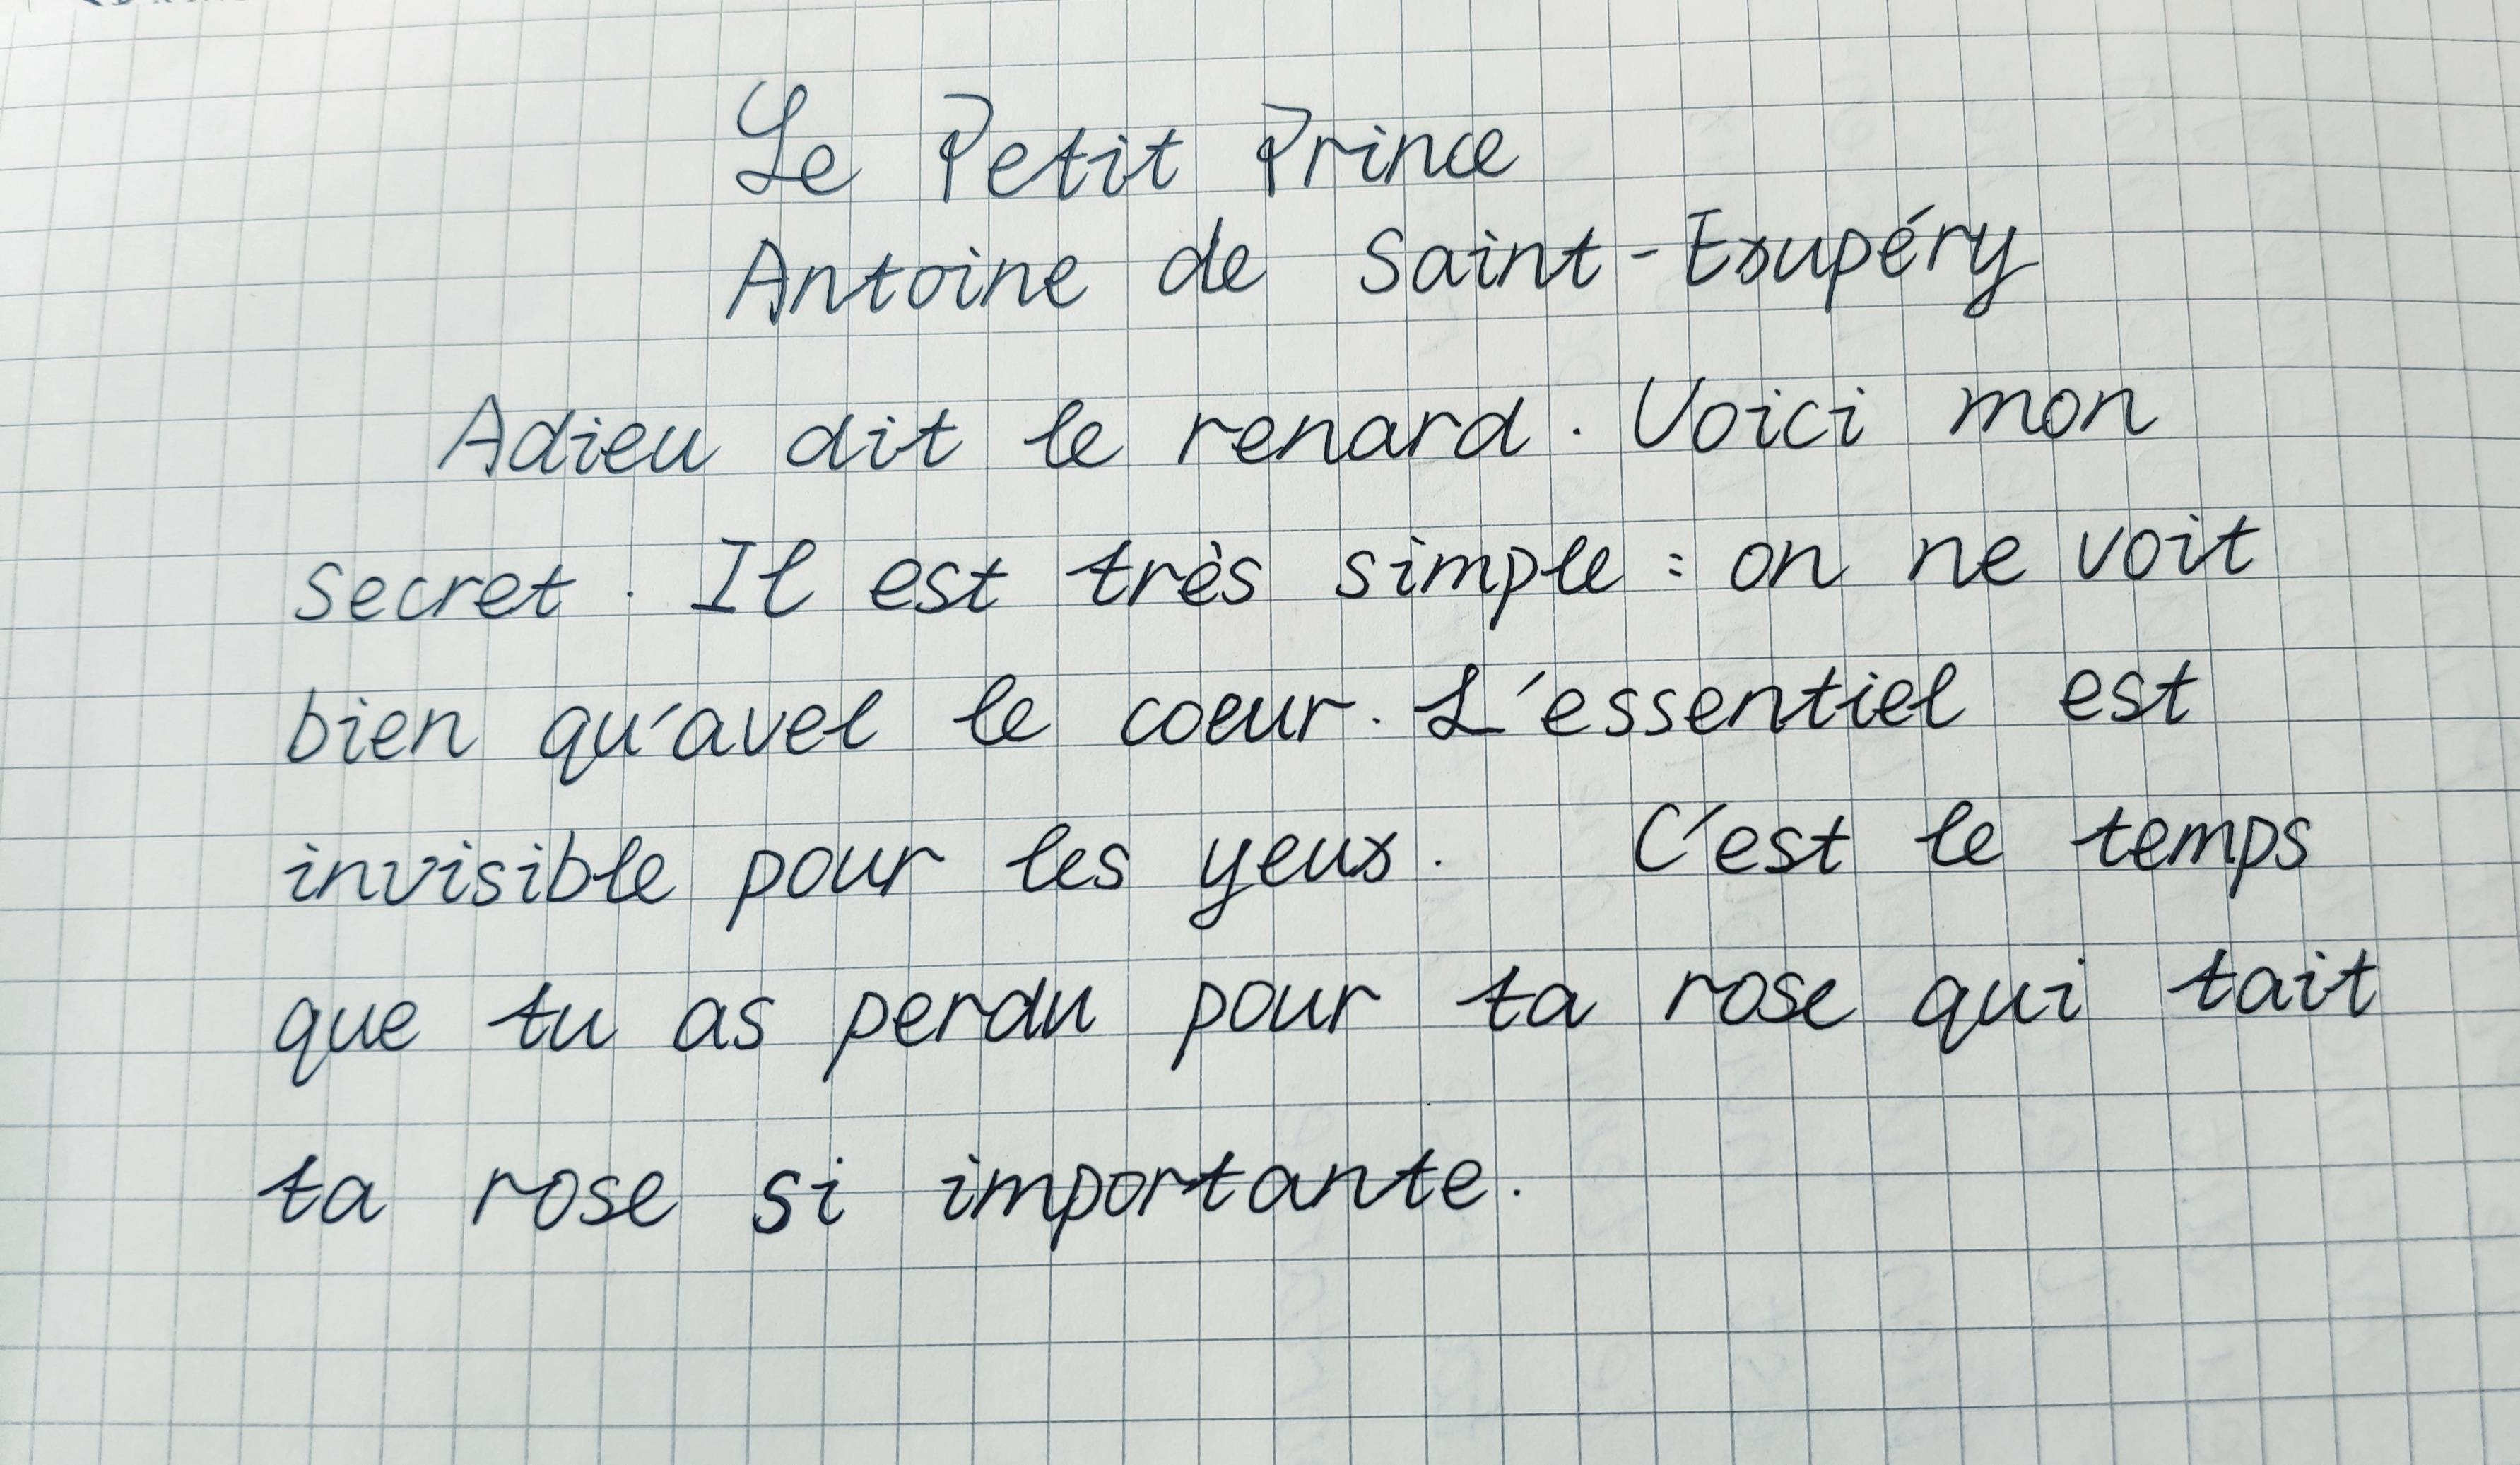 Le Petit Prince
Antoine de Saint-Exupéry
Adieu dit le renard. Voici mon
secret. Il est très simple : on ne voit
bien qu'avel le coeur. L'essentiel est
invisible pour les yeux. C'est le temps
que tu as perdu pour ta rose qui tait
ta rose si importante.